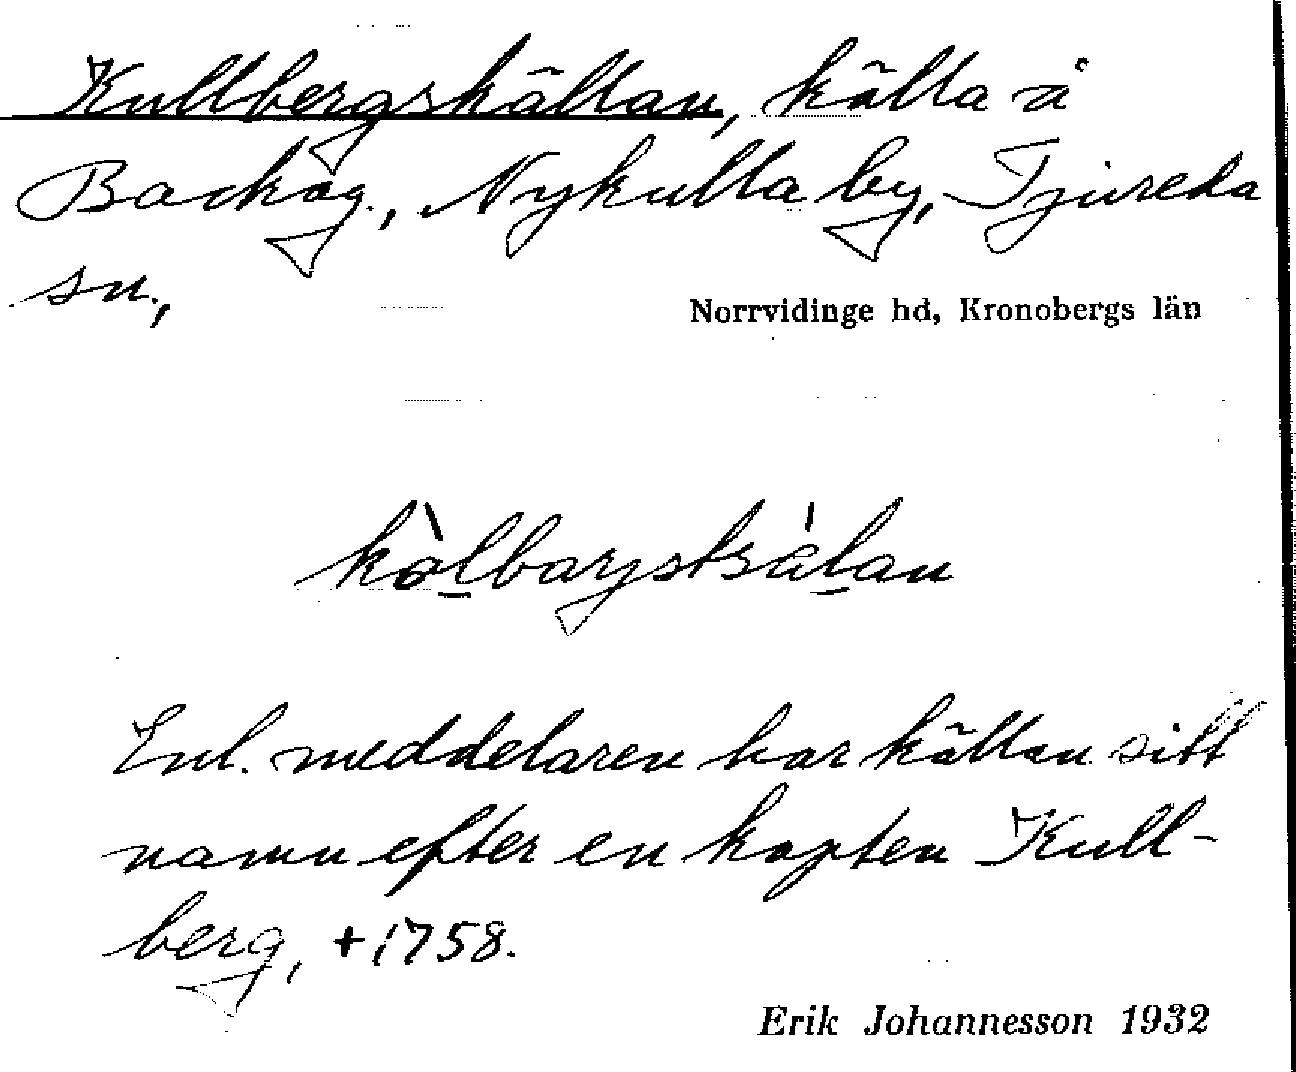 Kullbergskällan, källa å
Backag., Nykulla by, Tjureda
sn.,
Norrvidinge hd, Kronobergs län
kòlbarjstsálan
Enl. meddelaren har källan sitt
namn efter en kapten Kull-
berg, +1758.
Erik Johannesson 1932